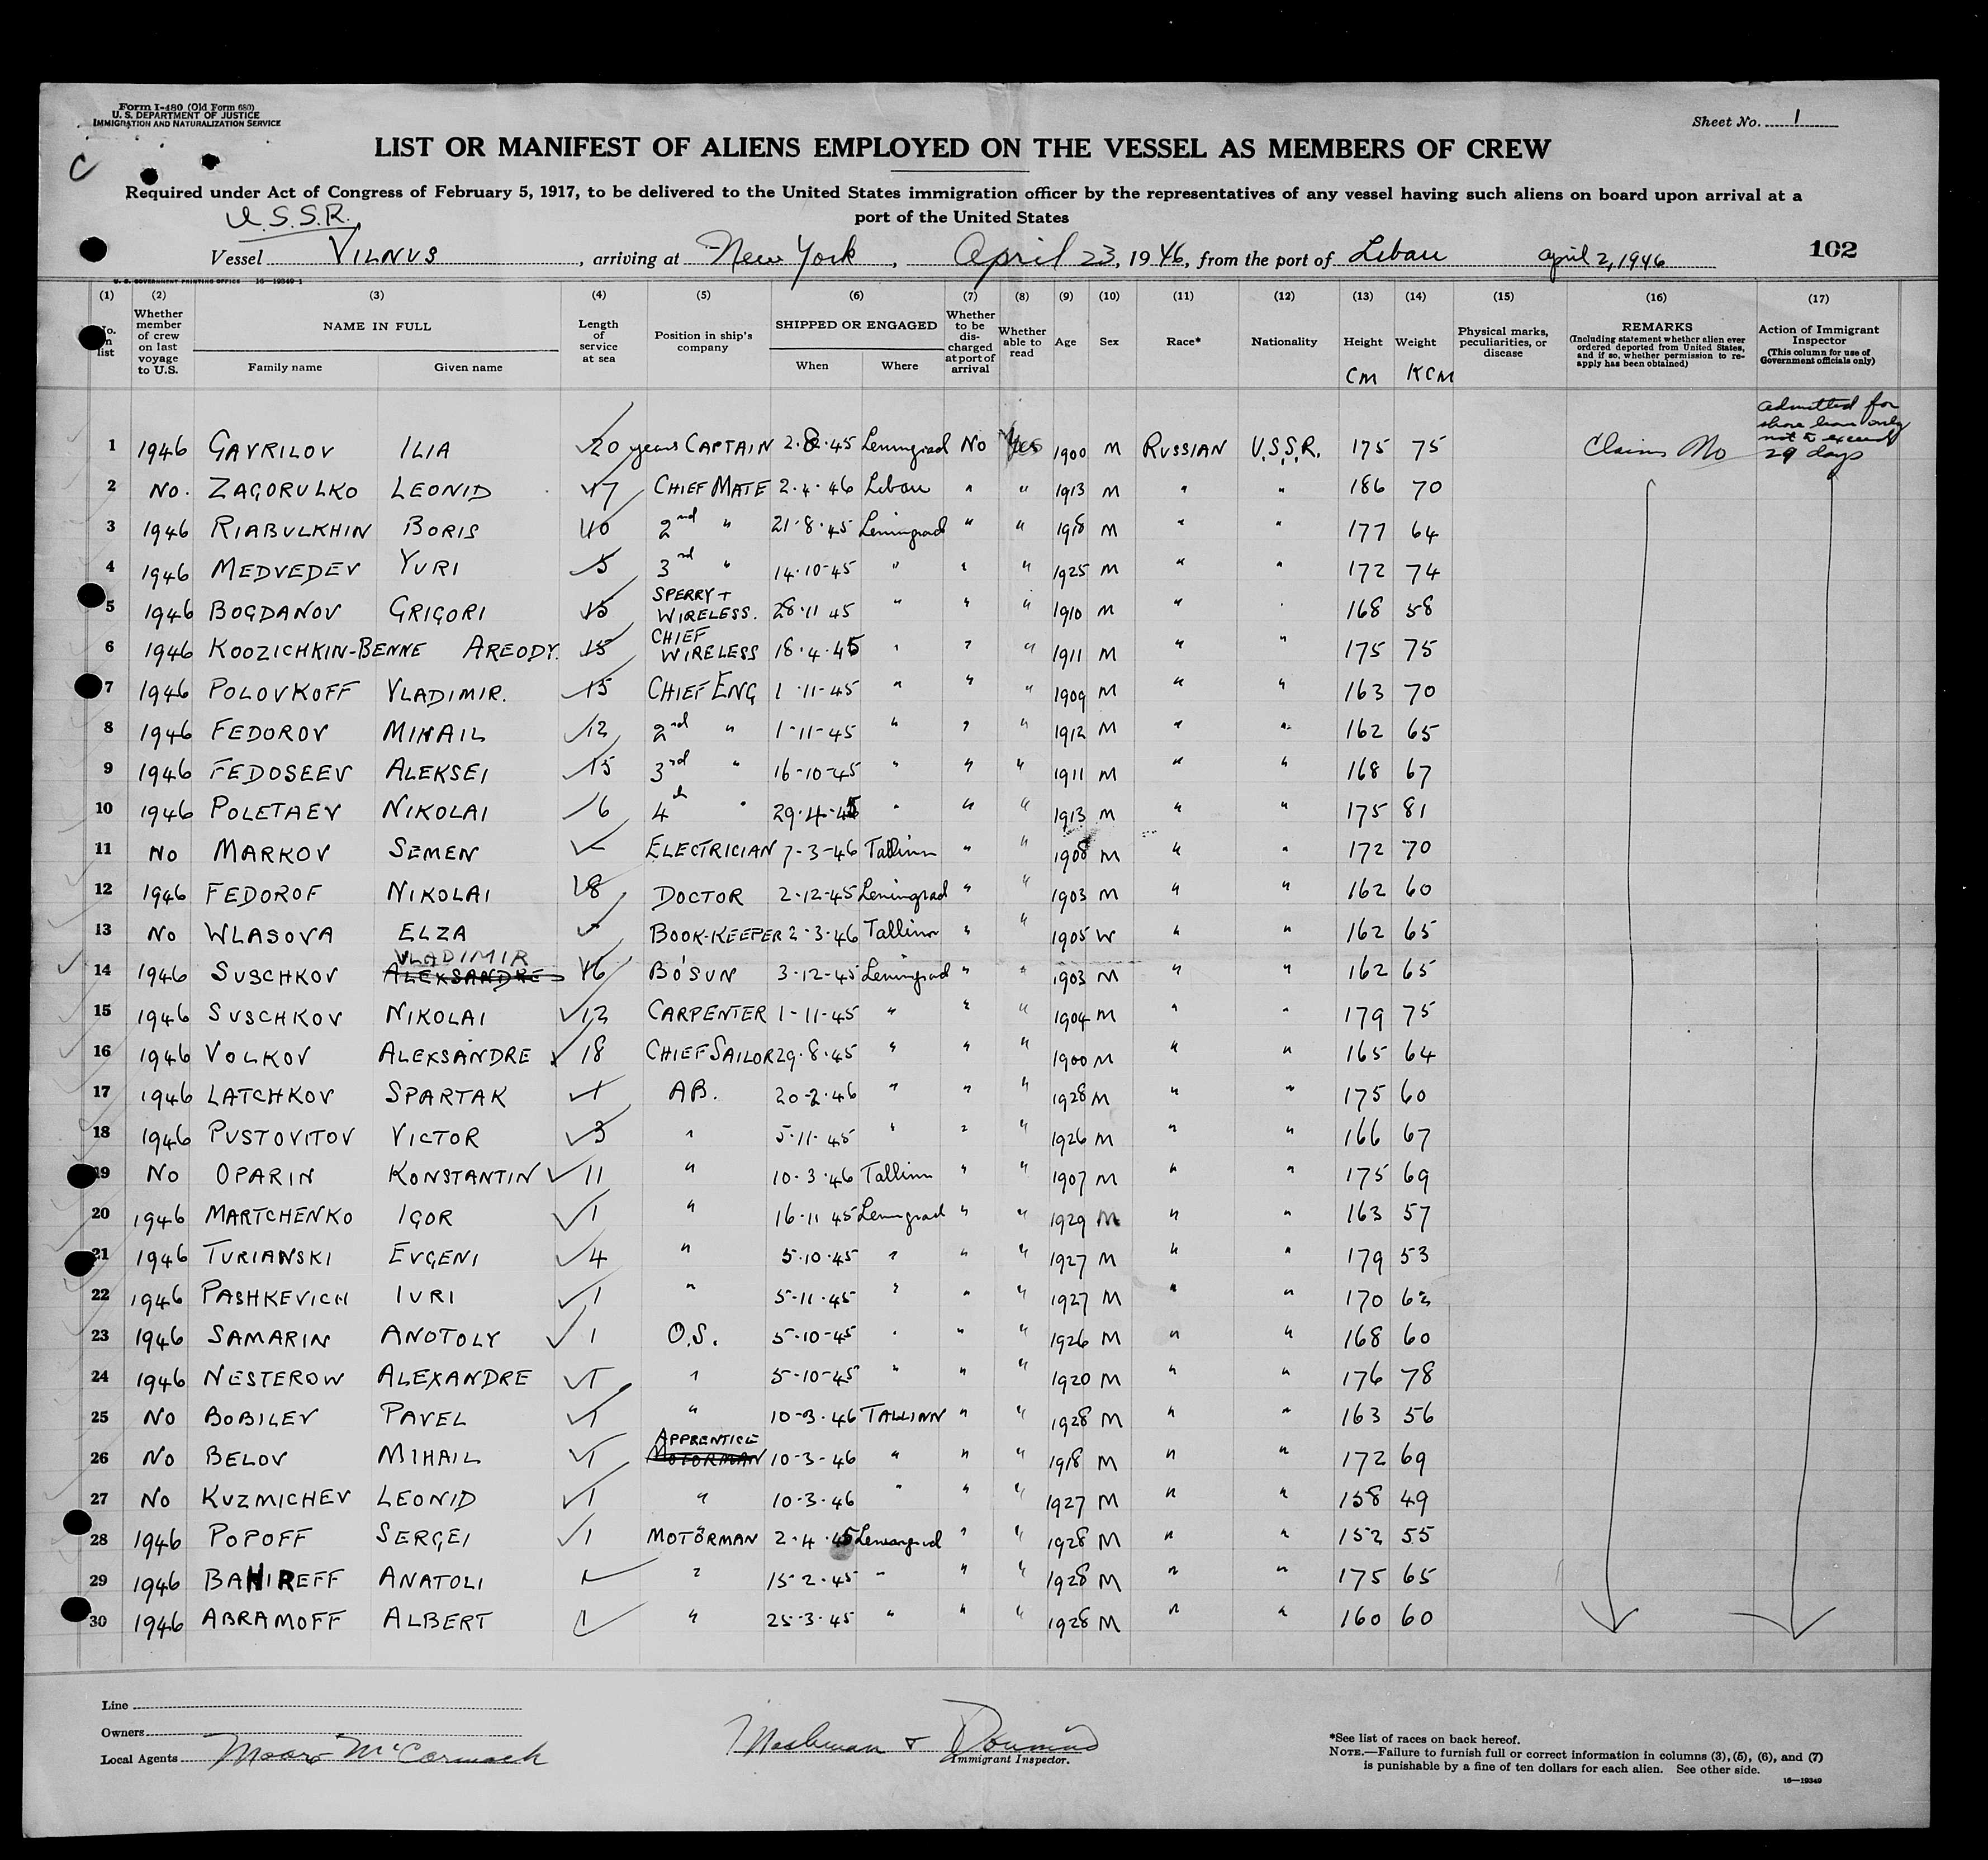 Form I-480 (Old Form 680)
U. S. DEPARTMENT OF JUSTICE
IMMIGRATION AND NATURALIZATION SERVICE
Sheet No. 1
C
LIST OR MANIFEST OF ALIENS EMPLOYED ON THE VESSEL AS MEMBERS OF CREW
Required under Act of Congress of February 5, 1917, to be delivered to the United States immigration officer by the representatives of any vessel having such aliens on board upon arrival at a
port of the United States
U.S.S.R.
Vessel VILNUS, arriving at New York, April 23, 1946, from the port of Libau april 2, 1946 102
U. S. GOVERNMENT PRINTING OFFICE 16-19349-1
(1) (2) (3) (4) (5) (6) (7) (8) (9) (10) (11) (12) (13) (14) (15) (16) (17)
No. in list Whether member of crew on last voyage to U.S. NAME IN FULL Family name Given name Length of service at sea Position in ship's company SHIPPED OR ENGAGED When Where Whether to be discharged at port of arrival Whether able to read Age Sex Race* Nationality Height Weight Physical marks, peculiarities, or disease REMARKS (Including statement whether alien ever ordered deported from United States, and if so, whether permission to reapply has been obtained) Action of Immigrant Inspector (This column for use of Government officials only)
CM KCM
admitted for
shore leave only
not to exceed
29 days
1 1946 GAVRILOV ILIA 20 years CAPTAIN 2.8.45 Leningrad No Yes 1900 M RUSSIAN U.S.S.R. 175 75 Claims No
2 No. ZAGORULKO LEONID 17 CHIEF MATE 2.4.46 Libau " " 1913 M " " 186 70
3 1946 RIABULKHIN BORIS 10 2nd " 21.8.45 Leningrad " " 1918 M " " 177 64
4 1946 MEDVEDEV YURI 5 3rd " 14.10-45 " " " 1925 M " " 172 74
5 1946 BOGDANOV GRIGORI 15 SPERRY + WIRELESS. 28.11 45 " " " 1910 M " " 168 58
6 1946 KOOZICHKIN-BENNE AREODY. 15 CHIEF WIRELESS 18.4.45 " " " 1911 M " " 175 75
7 1946 POLOVKOFF VLADIMIR. 15 CHIEF ENG 1-11-45 " " " 1909 M " " 163 70
8 1946 FEDOROV MIHAIL 12 2nd " 1-11-45 " " " 1912 M " " 162 65
9 1946 FEDOSEEV ALEKSEI 15 3rd " 16-10-45 " " " 1911 M " " 168 67
10 1946 POLETAEV NIKOLAI 6 4th " 29.4.45 " " " 1913 M " " 175 81
11 No MARKOV SEMEN ELECTRICIAN 7-3-46 Tallinn " " 1908 M " " 172 70
12 1946 FEDOROF NIKOLAI 18 DOCTOR 2-12-45 Leningrad " " 1903 M " " 162 60
13 No WLASOVA ELZA BOOK-KEEPER 2-3-46 Tallinn " " 1905 W " " 162 65
14 1946 SUSCHKOV ALEKSANDRE VLADIMIR 16 BO'SUN 3-12-45 Leningrad " " 1903 M " " 162 65
15 1946 SUSCHKOV NIKOLAI 12 CARPENTER 1-11-45 " " " 1904 M " " 179 75
16 1946 VOLKOV ALEKSANDRE 18 CHIEF SAILOR 29.8.45 " " " 1900 M " " 165 64
17 1946 LATCHKOV SPARTAK 1 AB. 20-2.46 " " " 1928 M " " 175 60
18 1946 PUSTOVITOV VICTOR 3 " 5.11.45 " " " 1926 M " " 166 67
19 No OPARIN KONSTANTIN 11 " 10.3.46 Tallinn " " 1907 M " " 175 69
20 1946 MARTCHENKO IGOR 1 " 16.11 45 Leningrad " " 1929 M " " 163 57
21 1946 TURIANSKI EVGENI 4 " 5.10.45 " " " 1927 M " " 179 53
22 1946 PASHKEVICH IURI 1 " 5-11.45 " " " 1927 M " " 170 62
23 1946 SAMARIN ANOTOLY 1 O.S. 5-10-45 " " " 1926 M " " 168 60
24 1946 NESTEROW ALEXANDRE 1 " 5-10-45 " " " 1920 M " " 176 78
25 No BOBILEV PAVEL 1 " 10-3.46 TALLINN " " 1928 M " " 163 56
26 No BELOV MIHAIL 1 MOTORMAN APPRENTICE 10-3-46 " " " 1918 M " " 172 69
27 No KUZMICHEV LEONID 1 " 10.3.46 " " " 1927 M " " 158 49
28 1946 POPOFF SERGEI 1 MOTORMAN 2.4.45 Leningrad " " 1928 M " " 152 55
29 1946 BAHIREFF ANATOLI 1 " 15.2.45 " " " 1928 M " " 175 65
30 1946 ABRAMOFF ALBERT 1 " 25-3.45 " " " 1928 M " " 160 60
Line
Owners
Local Agents Moore McCormack
Immigrant Inspector.
*See list of races on back hereof.
NOTE.—Failure to furnish full or correct information in columns (3), (5), (6), and (7)
is punishable by a fine of ten dollars for each alien. See other side.
16—19349